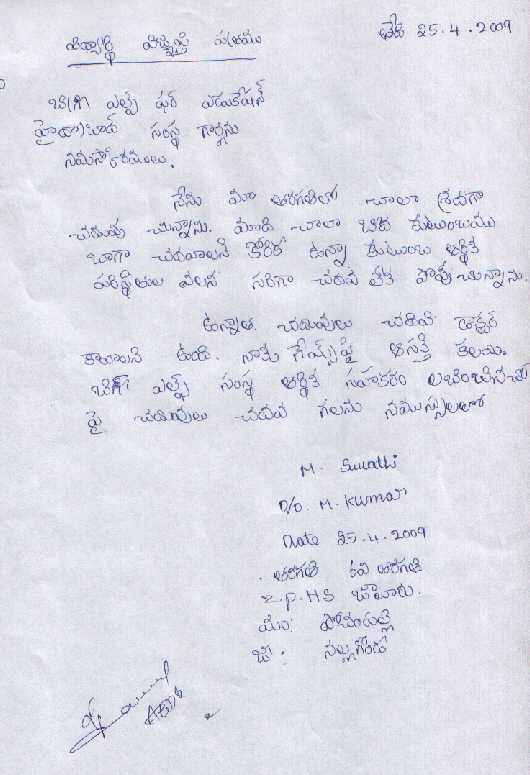 విద్యార్థి విజ్ఞప్తి పత్రము
తేది 25.4.2009
హెల్ప్ ఫర్ ఎడుకేషన్
హైద్రాబాద్ సంస్థ గార్లకు
నమస్కారములు.
నేను మా తరగతిలో చాలా శ్రద్దగా
చదువు చున్నాను. మాది చాలా బీద కుటుంబము
బాగా చదవాలనే కోరిక ఉన్నా కుటుంబ ఆర్థిక
పరిస్థితుల వలన సరిగా చదువ లేక పోవు చున్నాను.
ఉన్నాత చదువులు చదివి డాక్టర్
కావాలని ఉంది. నాకు గేమ్స్ పై ఆసక్తి కలదు.
హెల్ప్ సంస్థ ఆర్థిక సహాకారం లభించినచో
పై చదువులు చదువ గలను నమస్సులలో
M. Swathi
D/o. M. Kumar
Date 25.4.2009
తరగతి 6వ తరగతి
Z.P.HS
మం: పోచంపల్లి
జి: నల్లగొండ